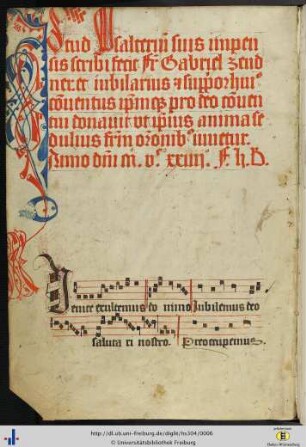 Istud Psalterium suis impen
sis scribi fecit Fr Gabriel Zend
nerer iubilarius & supprior hui9
cōuentus ip̄mq3 pro eo cōuen
tui donauit ut ip̄ius anima se
dulius frm̄ orōnib9 iuuetur.
Anno dn̄i m. vc xxiiij. F. h. B.
Uenite exultemus do mino Jubilemus deo
saluta ri nostro. Preoccupemus
http://dl.ub.uni-freiburg.de/diglit/hs304/0006
© Universitätsbibliothek Freiburg